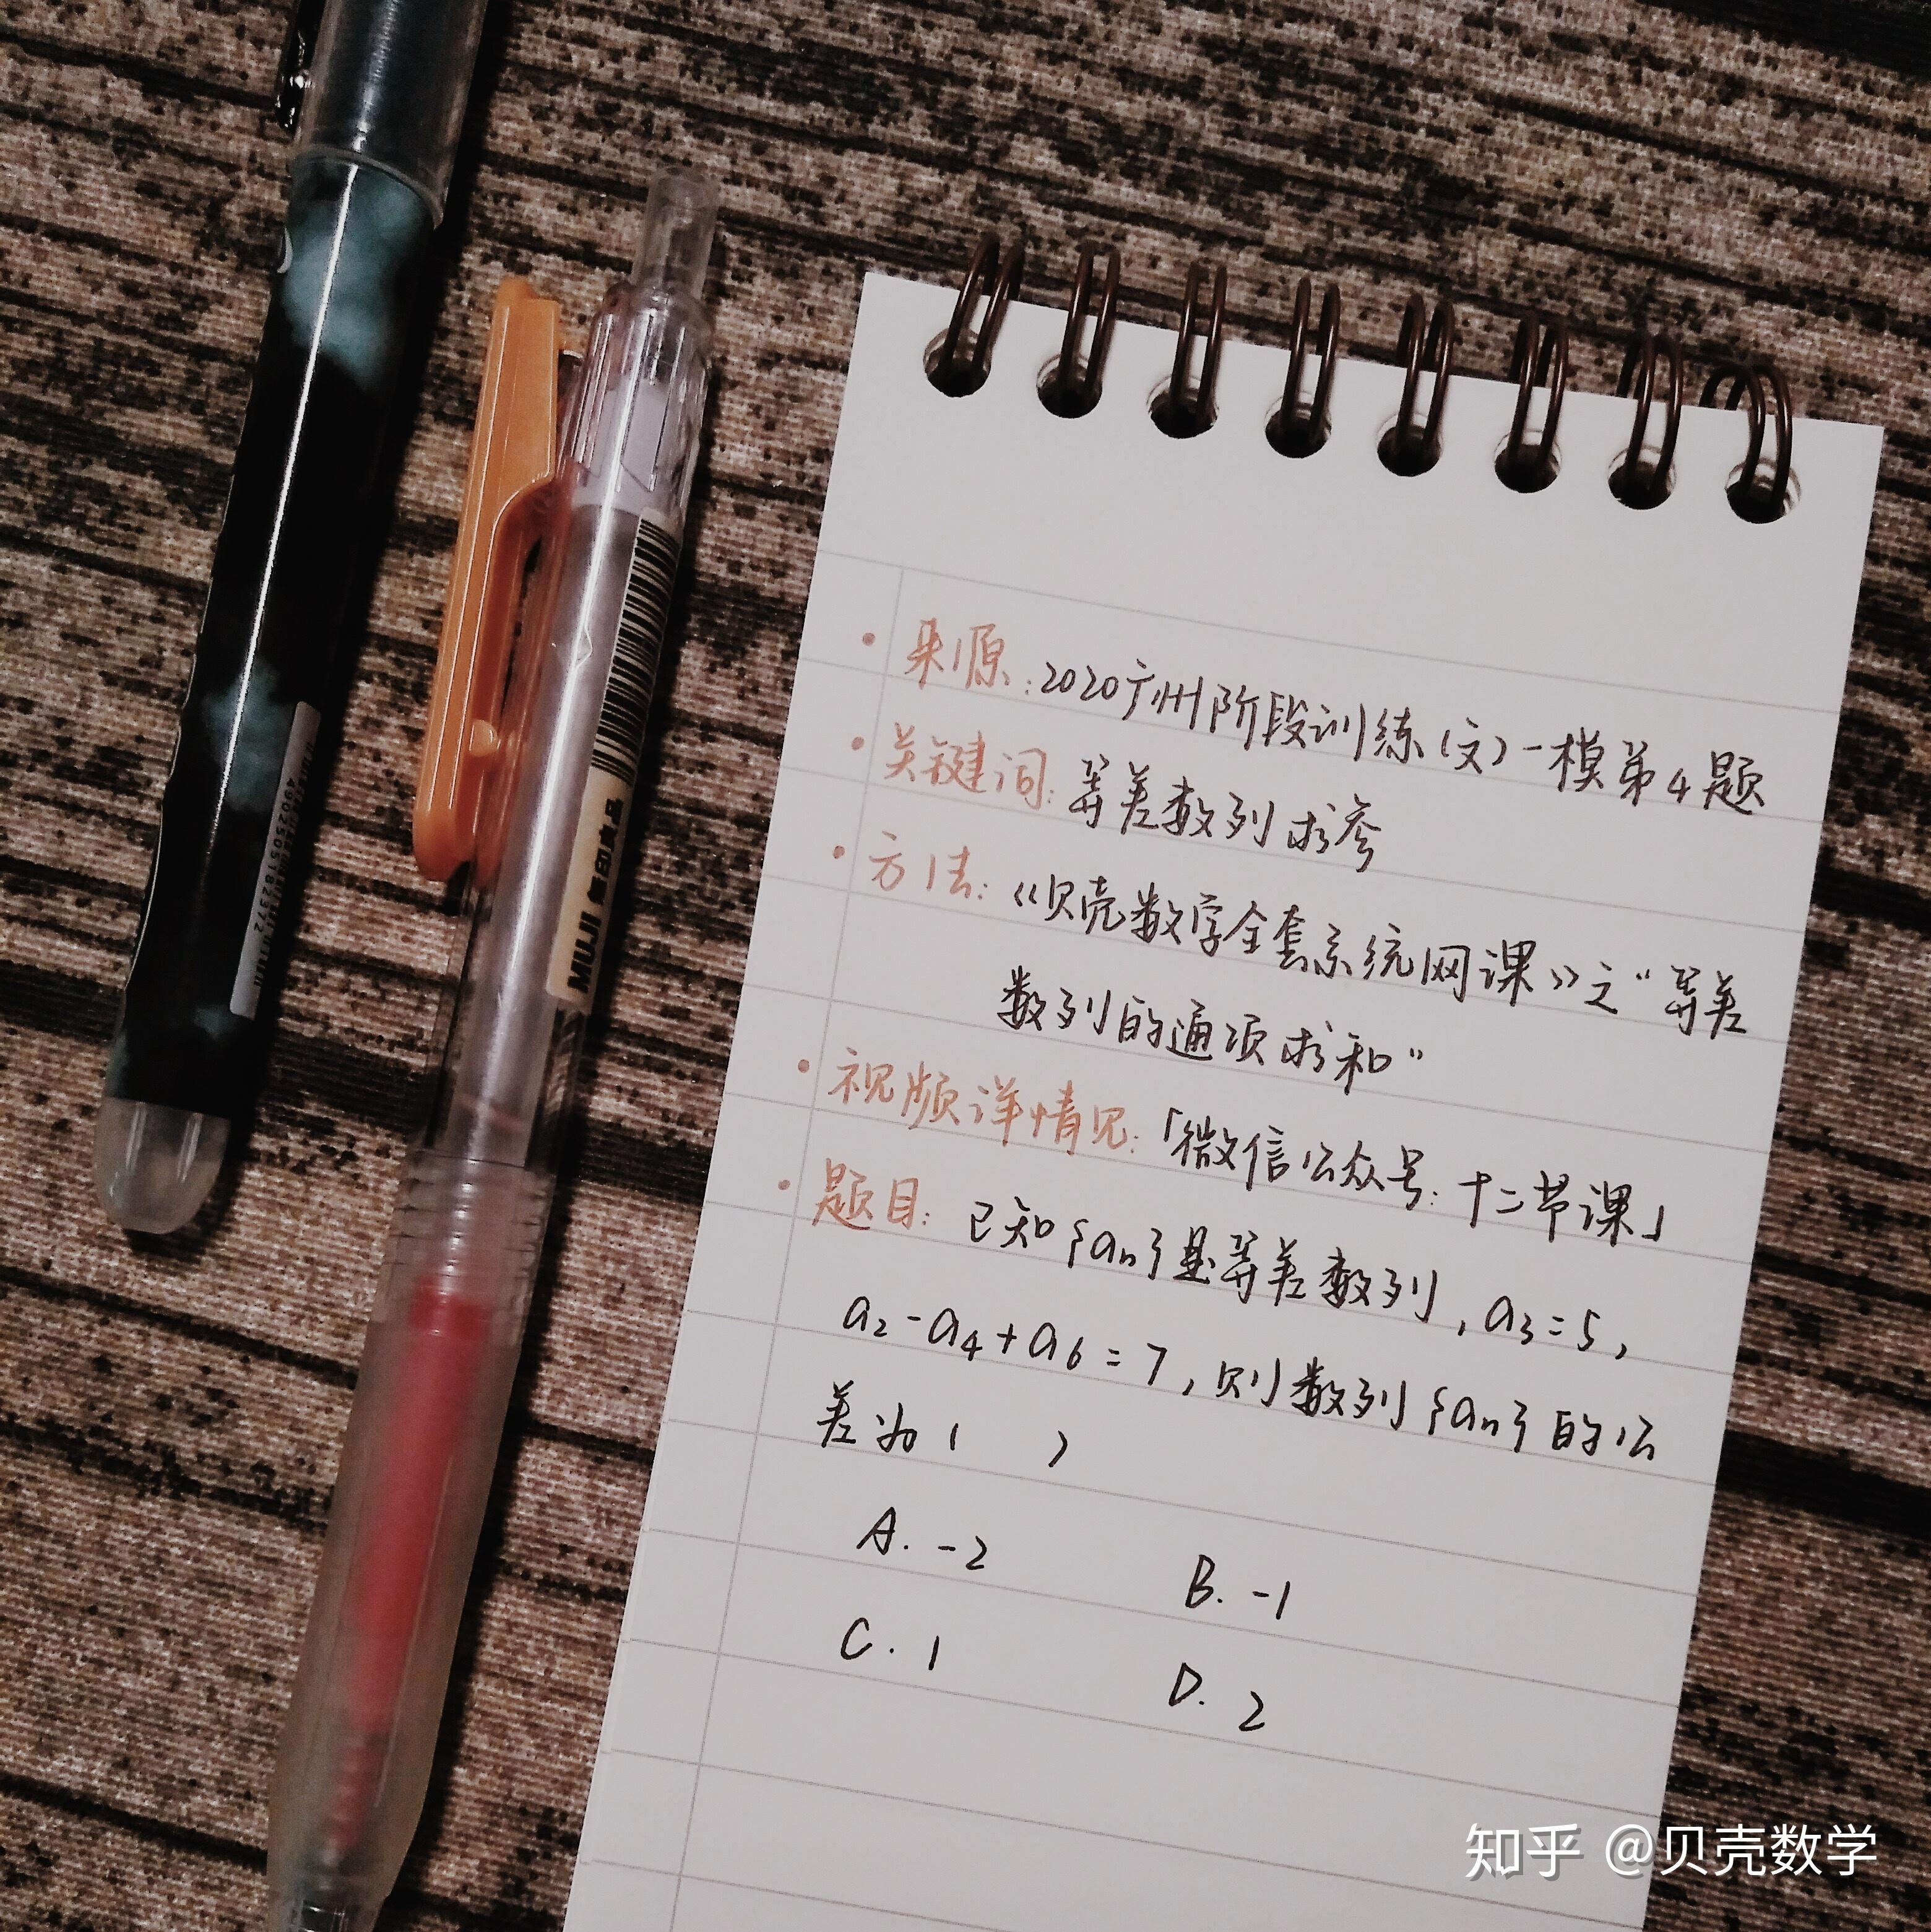 4902505182372
MUJI 無印良品
• 来源:2020广州阶段训练(文)一模第4题
• 关键词:等差数列求参
• 方法:《贝壳数学全套系统网课》之“等差
数列的通项求和”
• 视频详情见:「微信公众号:十二节课」
• 题目:已知{an}是等差数列,a3=5,
a2-a4+a6=7,则数列{an}的公
差为( )
A. -2 B. -1
C. 1 D. 2
知乎 @贝壳数学